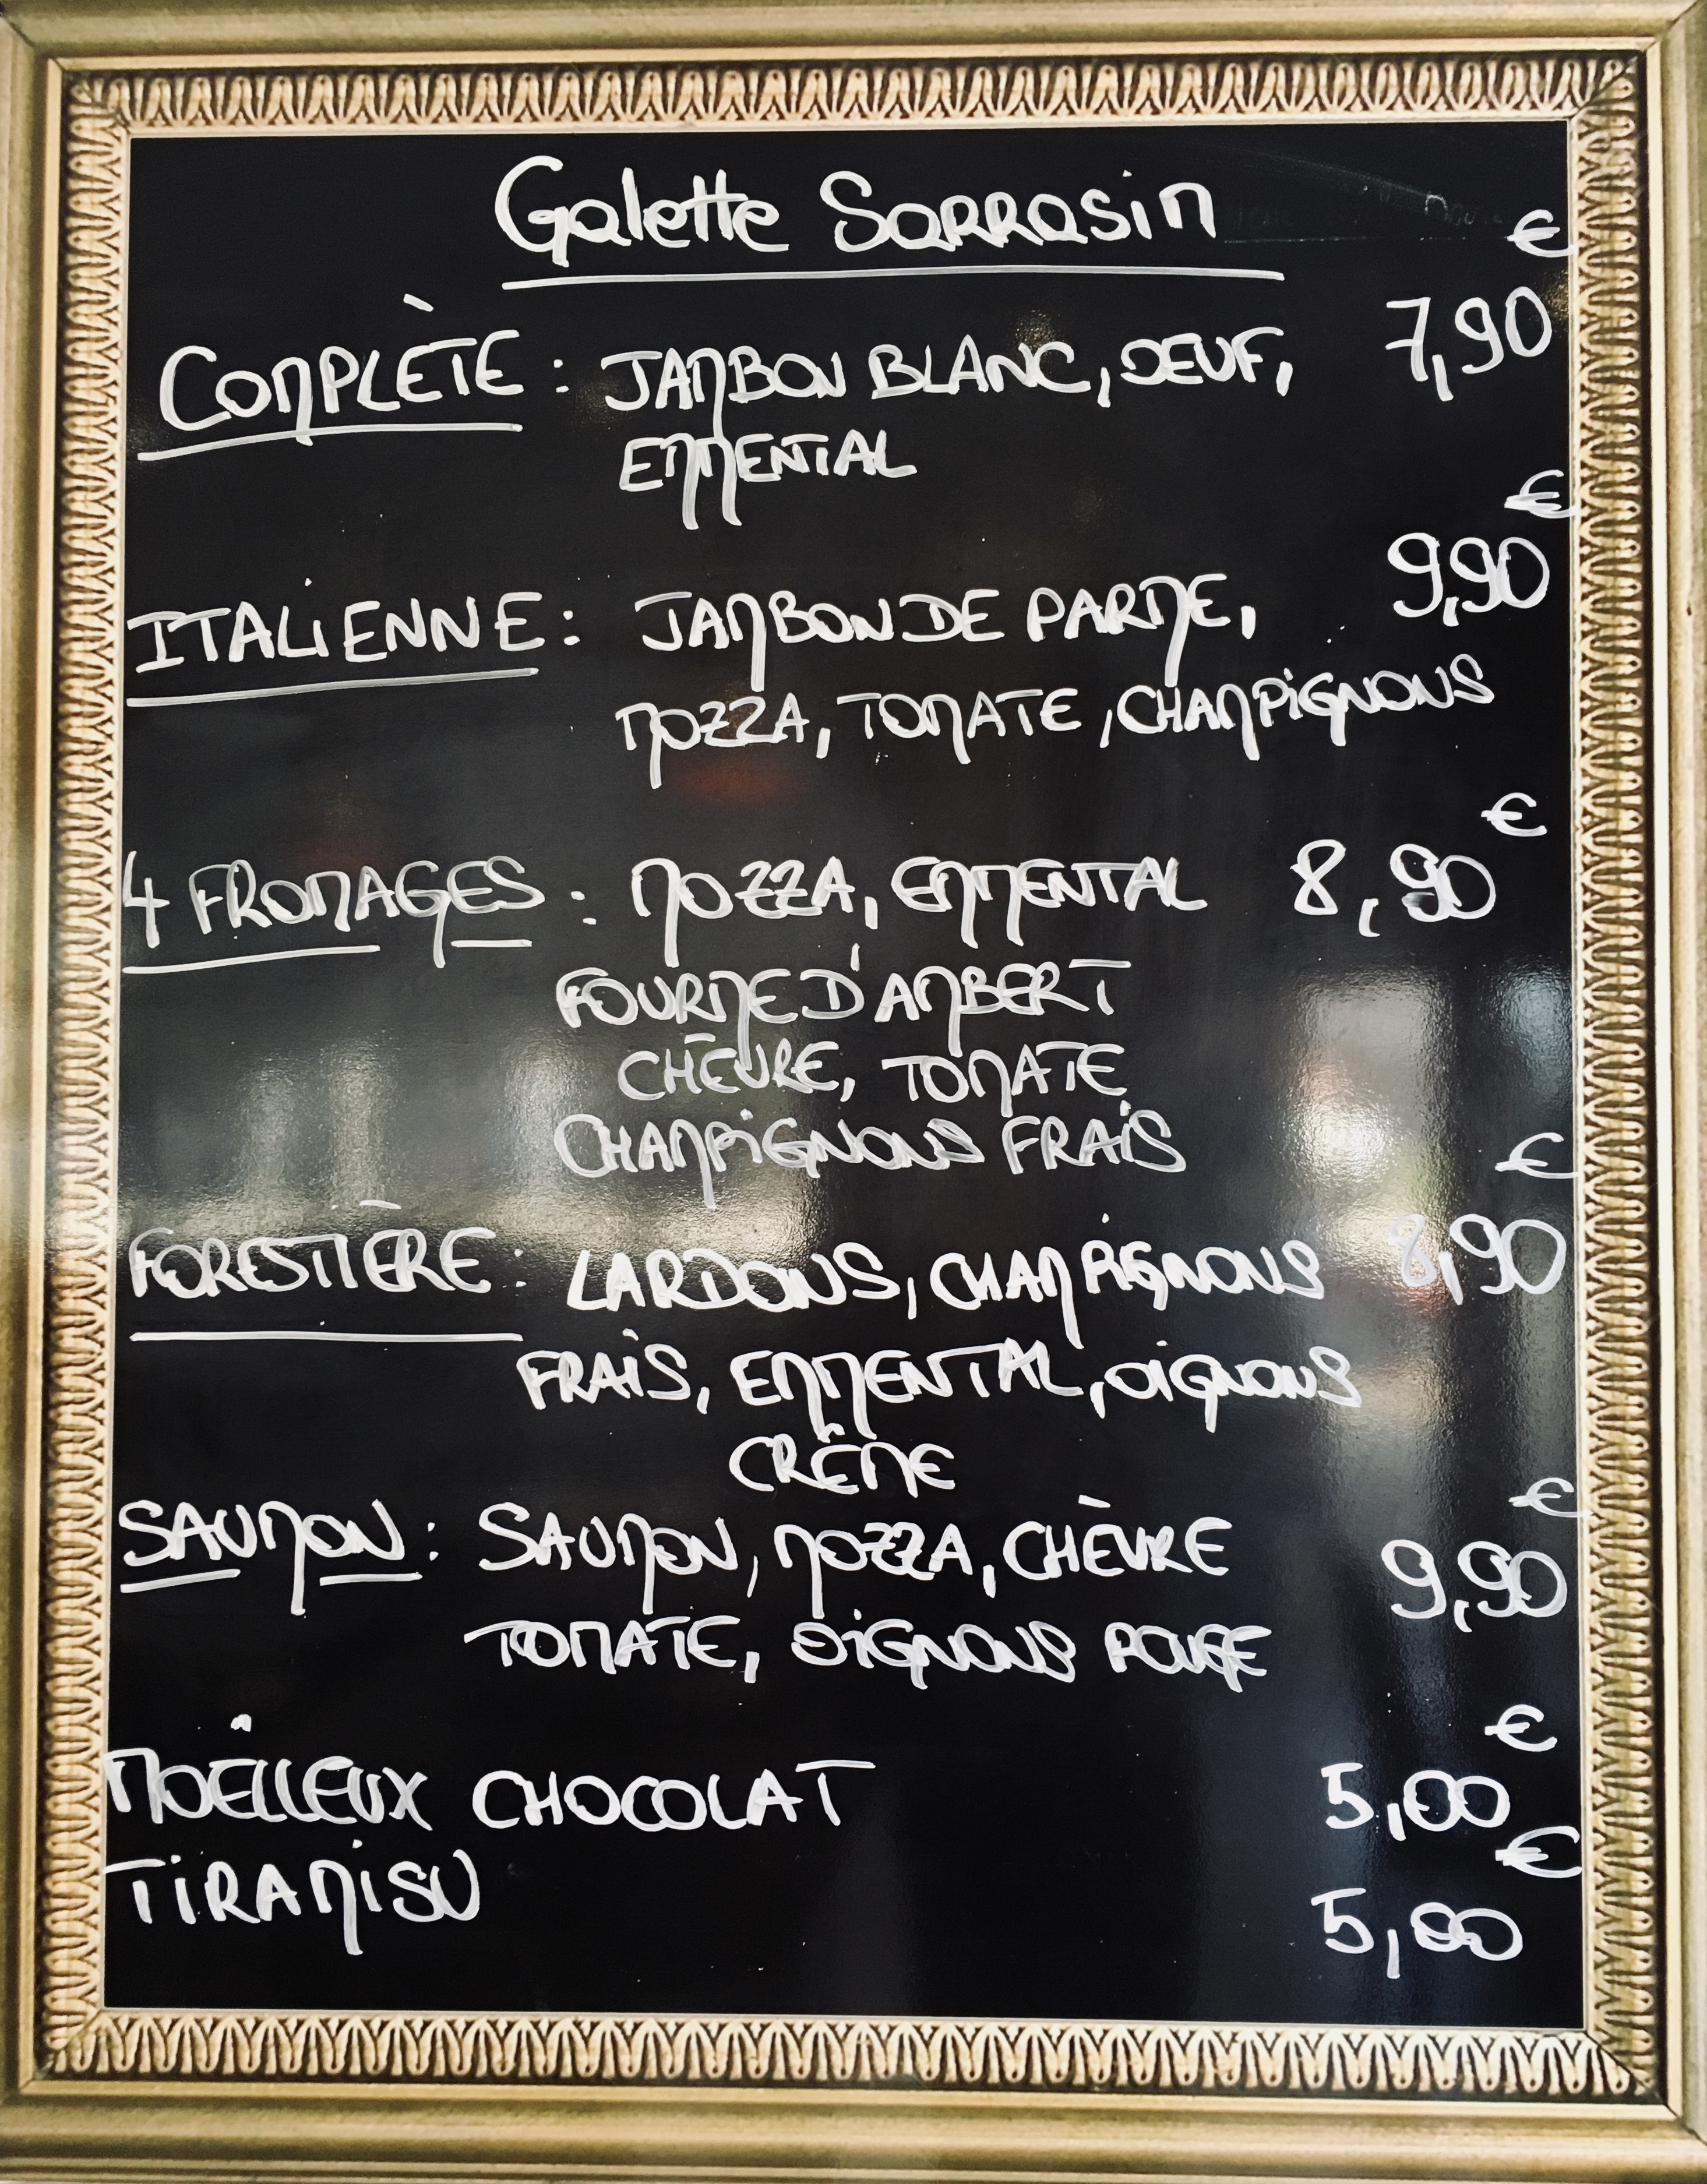 Galette Sarrasin
€
COMPLÈTE : JAMBON BLANC, OEUF, 7,90
EMMENTAL
€
ITALIENNE : JAMBON DE PARME, 9,90
MOZZA, TOMATE, CHAMPIGNONS
€
4 FROMAGES : MOZZA, EMMENTAL 8,90
FOURME D'AMBERT
CHÈVRE, TOMATE
CHAMPIGNONS FRAIS
€
FORESTIÈRE : LARDONS, CHAMPIGNONS 8,90
FRAIS, EMMENTAL, OIGNONS
CRÊME
€
SAUMON : SAUMON, MOZZA, CHÈVRE 9,90
TOMATE, OIGNONS ROUGE
€
MOËLLEUX CHOCOLAT 5,00
€
TIRAMISU 5,00